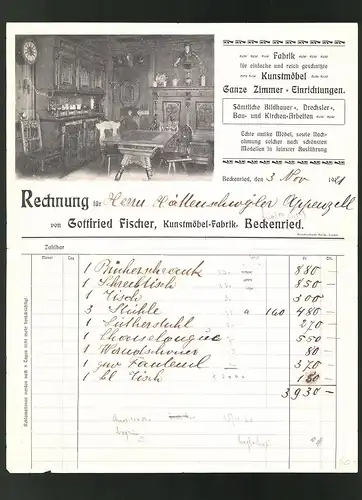 Fabrik
für einfache und reich geschnitzte
Kunstmöbel
Ganze Zimmer-Einrichtungen.
Sämtliche Bildhauer-, Drechsler-,
Bau- und Kirchen-Arbeiten
Echte antike Möbel, sowie Nach-
ahmung solcher nach schönsten
Modellen in feinster Ausführung
Beckenried, den 3 Nov 1921
Rechnung für Herrn Hättenschwyler Appenzell
von Gottfried Fischer, Kunstmöbel-Fabrik, Beckenried.
Zahlbar
1 Bücherschrank 880 —
1 Schreibtisch 850 —
1 Tisch 300
3 Stühle à 160 480 —
1 Lutherstuhl 270 —
1 Chaiselongue 550 —
1 80 —
1 Fauteuil 370 —
1 kl. Tisch 150 —
3930 —